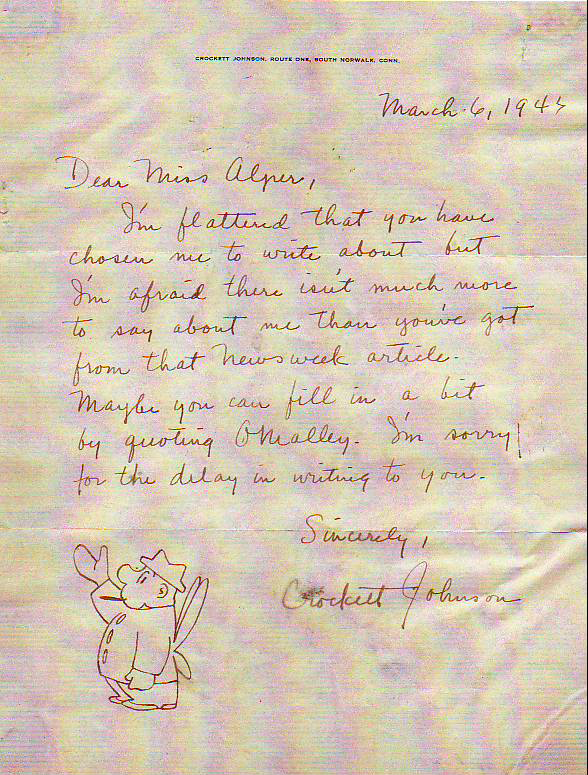 CROCKETT JOHNSON, ROUTE ONE, SOUTH NORWALK, CONN.
March 6, 1943
Dear Miss Alper,
I'm flattered that you have
chosen me to write about but
I'm afraid there isn't much more
to say about me than you've got
from that Newsweek article.
Maybe you can fill in a bit
by quoting O'Malley. I'm sorry
for the delay in writing to you.
Sincerely,
Crockett Johnson